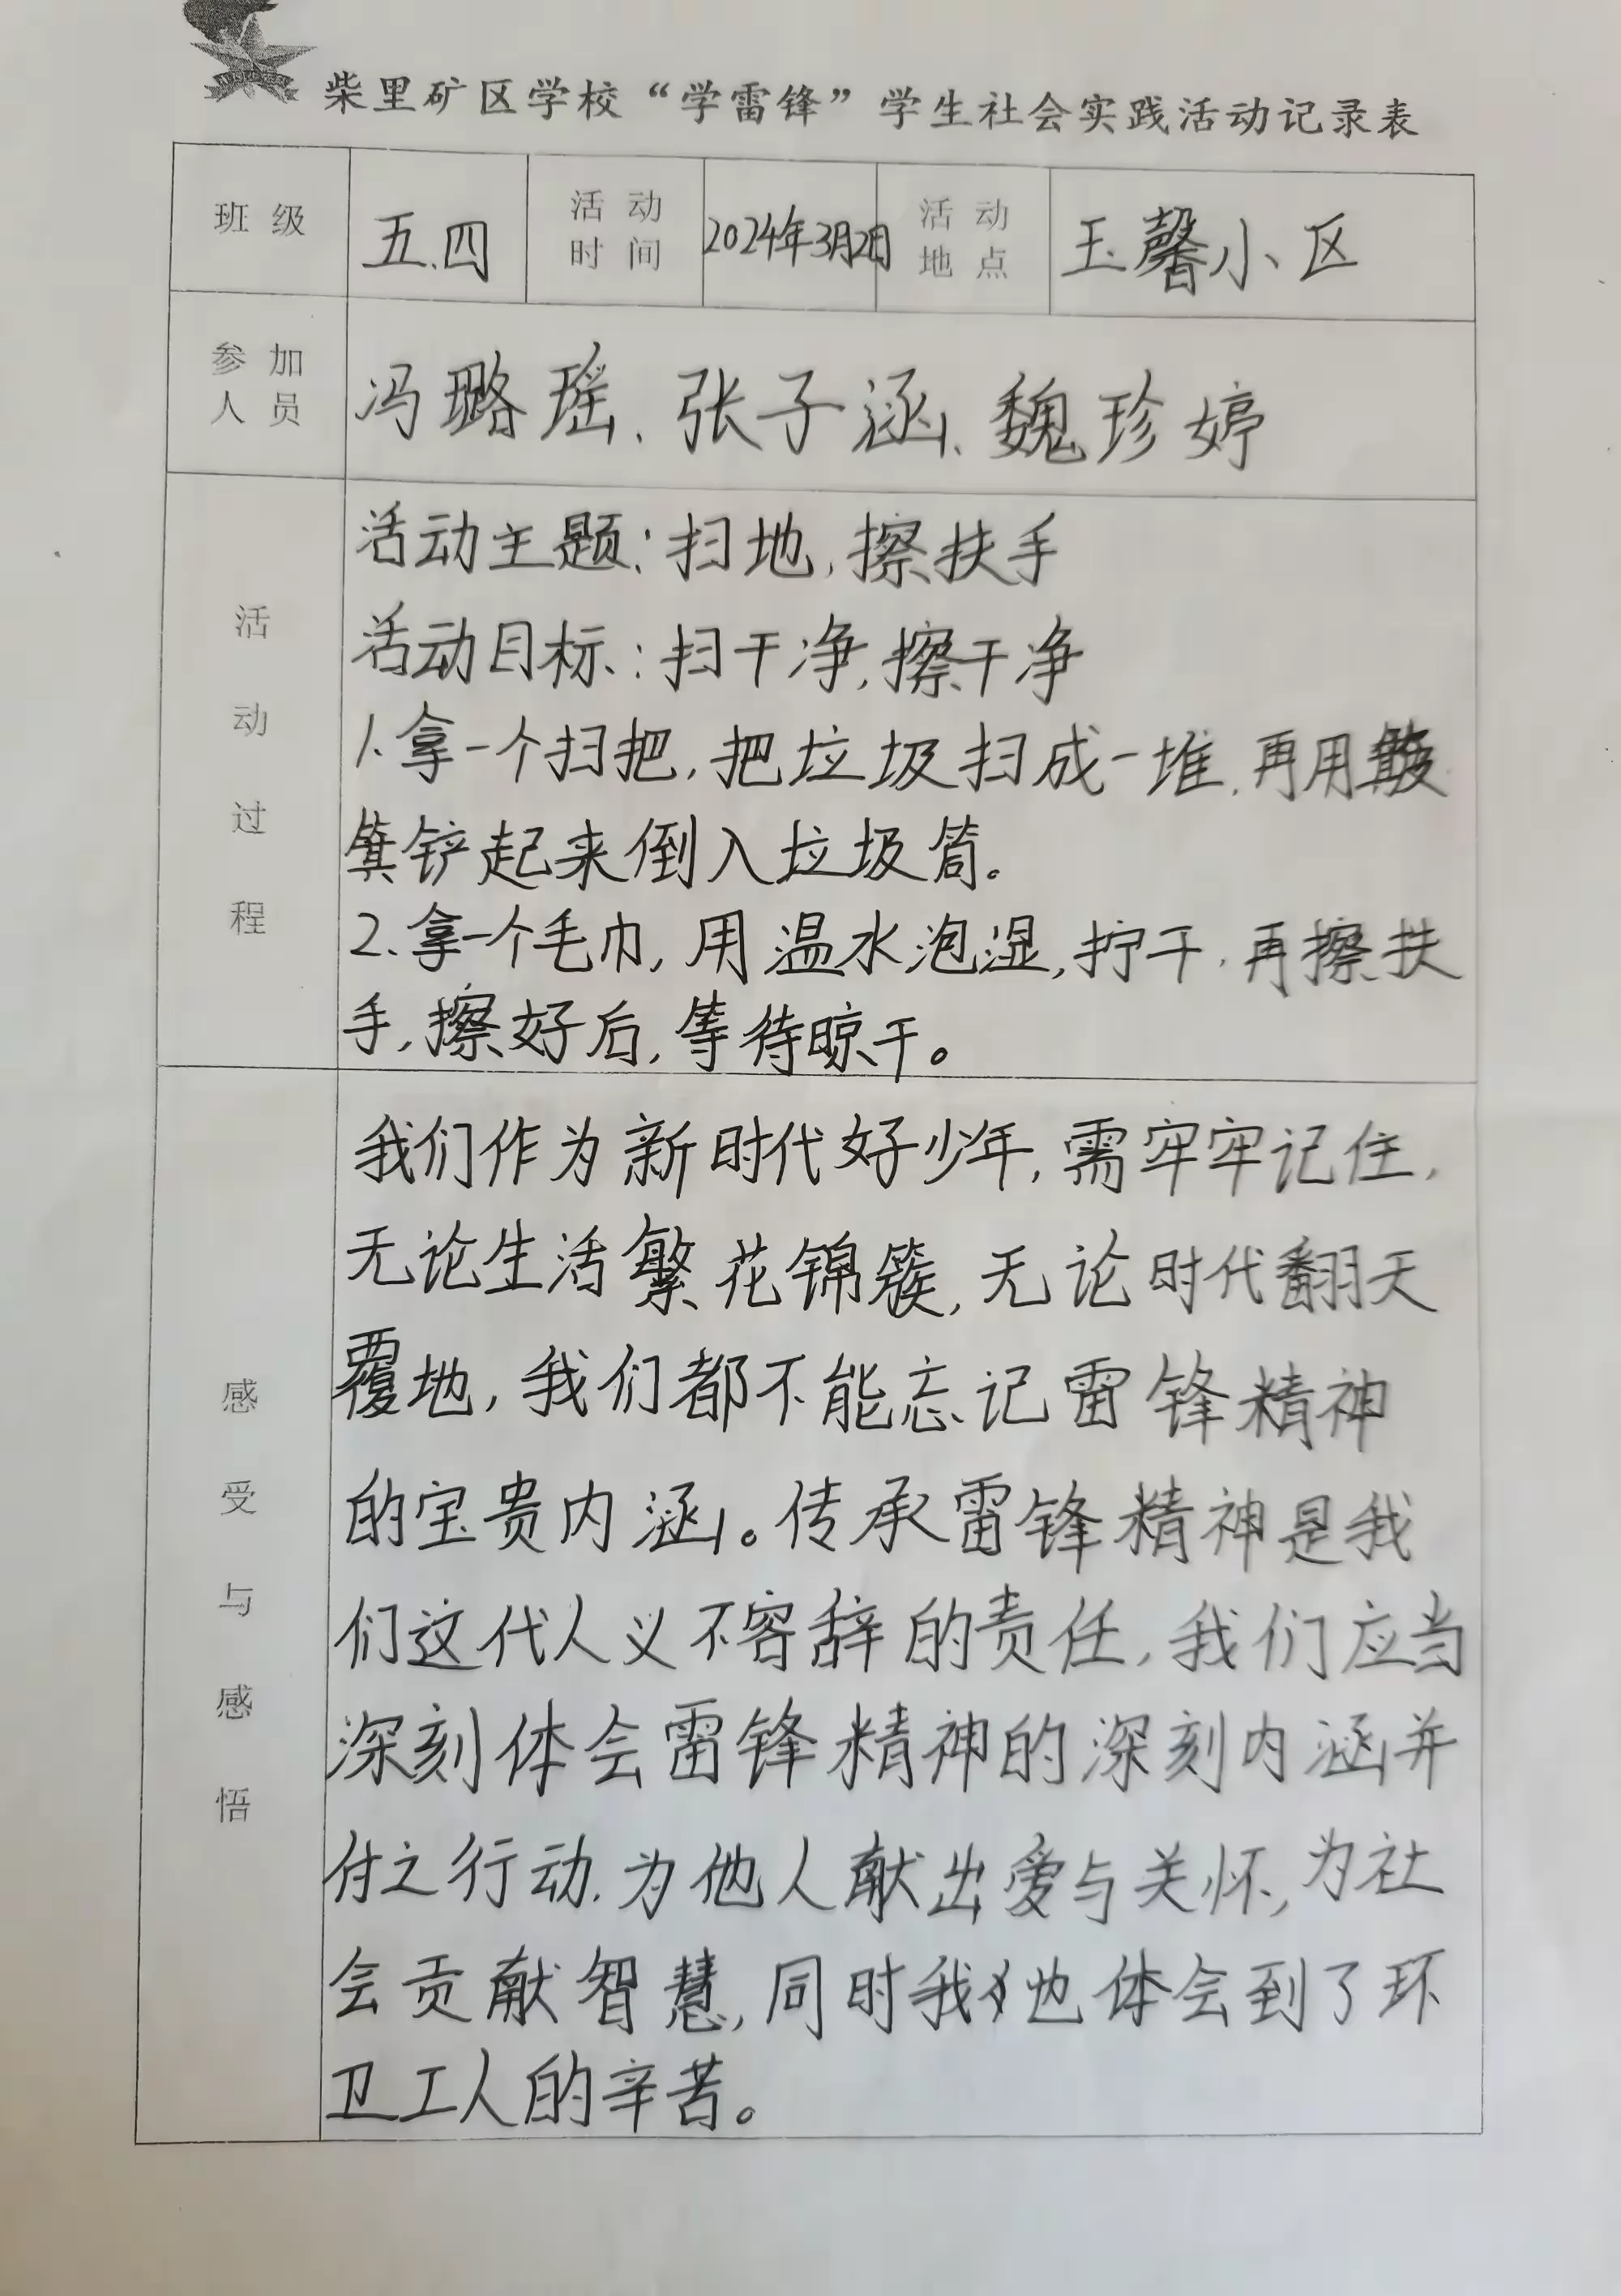 柴里矿区学校“学雷锋”学生社会实践活动记录表
班级 五.四 活动时间 2024年3月2日 活动地点 玉馨小区
参加人员 冯璐瑶、张子涵、魏珍婷
活动过程
活动主题:扫地,擦扶手
活动目标:扫干净,擦干净
1.拿一个扫把,把垃圾扫成一堆,再用簸
箕铲起来倒入垃圾筒。
2.拿一个毛巾,用温水泡湿,拧干,再擦扶
手,擦好后,等待晾干。
感受与感悟
我们作为新时代好少年,需牢牢记住,
无论生活繁花锦簇,无论时代翻天
覆地,我们都不能忘记雷锋精神
的宝贵内涵。传承雷锋精神是我
们这代人义不容辞的责任,我们应当
深刻体会雷锋精神的深刻内涵并
付之行动,为他人献出爱与关怀,为社
会贡献智慧,同时我也体会到了环
卫工人的辛苦。